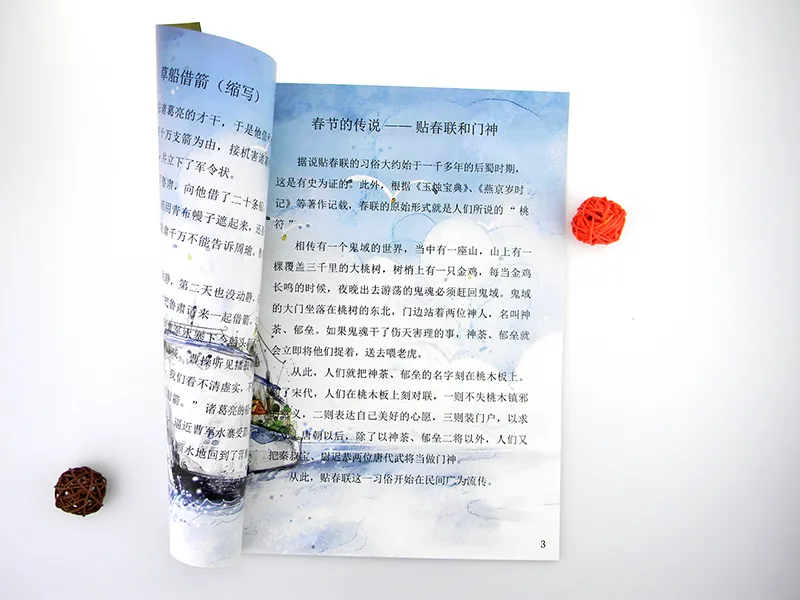 草船借箭（缩写）
诸葛亮的才干，于是他借
十万支箭为由，接机害诸葛
并立下了军令状。
鲁肃，向他借了二十条船
用青布幔子遮起来，还
肃千万不能告诉周瑜。鲁
静，第二天也没动静，
把鲁肃请来一起借箭。
军水寨下令船头
曹操听见擂鼓
我们看不清虚实，不
射箭。”诸葛亮的船
逼近曹军水寨受箭
顺水地回到了营
春节的传说 —— 贴春联和门神
据说贴春联的习俗大约始于一千多年的后蜀时期，
这是有史为证的。此外，根据《玉烛宝典》、《燕京岁时
记》等著作记载，春联的原始形式就是人们所说的“桃
符”。。
相传有一个鬼域的世界，当中有一座山，山上有一
棵覆盖三千里的大桃树，树梢上有一只金鸡，每当金鸡
长鸣的时候，夜晚出去游荡的鬼魂必须赶回鬼域。鬼域
的大门坐落在桃树的东北，门边站着两位神人，名叫神
荼、郁垒。如果鬼魂干了伤天害理的事，神荼、郁垒就
会立即将他们捉着，送去喂老虎。
从此，人们就把神荼、郁垒的名字刻在桃木板上。
了宋代，人们在桃木板上刻对联，一则不失桃木镇邪
义，二则表达自己美好的心愿，三则装门户，以求
唐朝以后，除了以神荼、郁垒二将以外，人们又
把秦叔宝、尉迟恭两位唐代武将当做门神。
从此，贴春联这一习俗开始在民间广为流传。
3